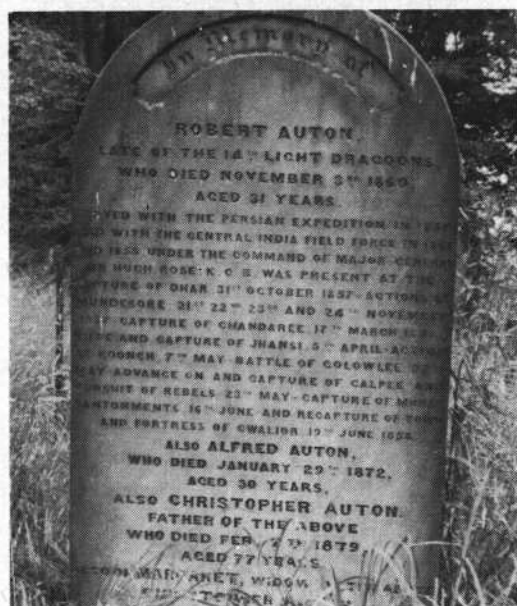 In Memory of
ROBERT AUTON,
LATE OF THE 14TH LIGHT DRAGOONS
WHO DIED NOVEMBER 3RD
AGED 31 YEARS.
WITH THE PERSIAN EXPEDITION IN
WITH THE CENTRAL INDIA FIELD FORCE IN
1858 UNDER THE COMMAND OF MAJOR
HUGH ROSE K.C.B. WAS PRESENT AT THE
OF DHAR 31ST OCTOBER 1857 ACTIONS
MUNDESORE 21ST 22ND 23RD AND 24TH
CAPTURE OF CHANDAREE 17TH MARCH
AND CAPTURE OF JHANSI 5TH APRIL
KOONCH 7TH MAY BATTLE OF GOLOWLEE
ADVANCE ON AND CAPTURE OF CALPEE
OF REBELS 23RD MAY CAPTURE OF
16TH JUNE AND RECAPTURE OF
AND FORTRESS OF GWALIOR 19TH JUNE
ALSO ALFRED AUTON,
WHO DIED JANUARY 29TH 1872,
AGED 30 YEARS,
ALSO CHRISTOPHER AUTON.
FATHER OF THE ABOVE
WHO DIED 1879,
AGED 77 YEARS
MARGARET, WIDOW